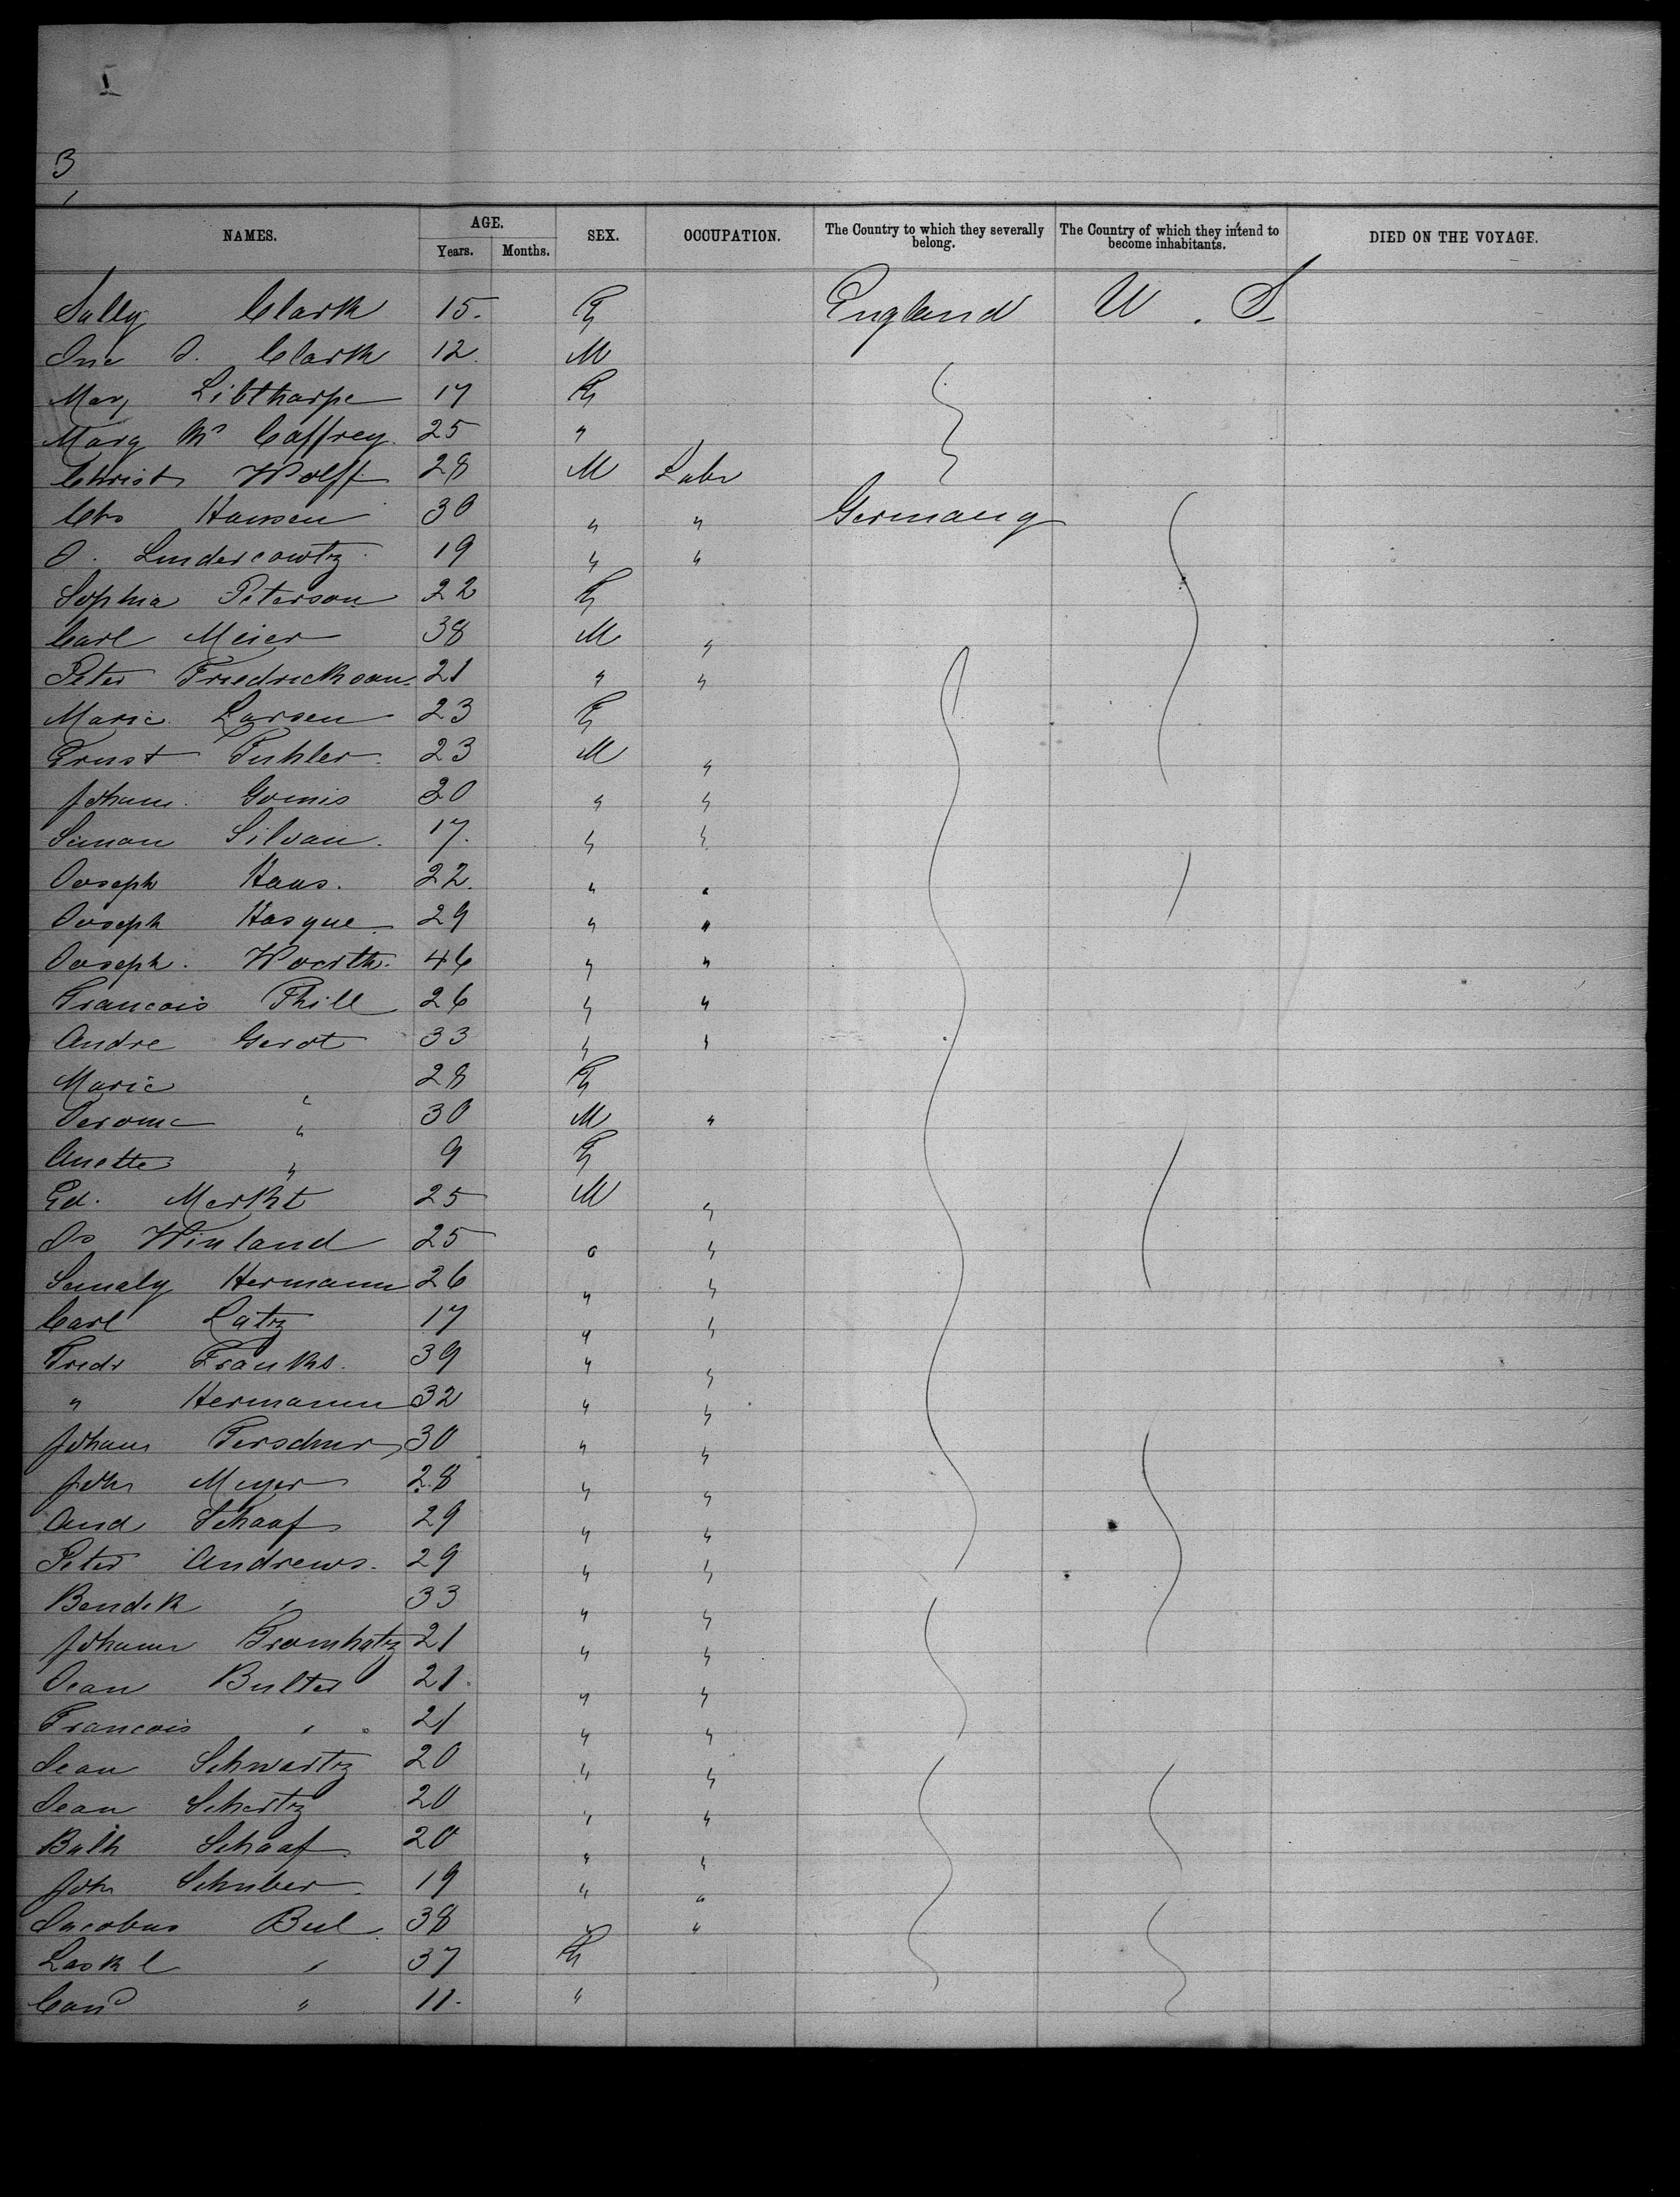 3
NAMES. AGE. Years. Months. SEX. OCCUPATION. The Country to which they severally belong. The Country of which they intend to become inhabitants. DIED ON THE VOYAGE.
Sally Clark 15. F England U. S.
Jno J. Clark 12. M
Mary Libtharpe 17 F
Mary Mc Caffrey. 25 "
Christ Wolff 28 M Labr
Chs Hansen 30 " " Germany
J. Lindercowtz 19 " "
Sophia Peterson 22 F
Carl Meier 38 M "
Peter Friedrickson. 21 " "
Marie Larsen 23 F
Ernst Fuhler. 23 M "
Johann. Gomis 20 " "
Simon Silvain. 17. " "
Joseph Haas. 22. " "
Joseph Hasque 29 " "
Joseph. Woerth. 46 " "
Francois Phill 26 " "
Andre Gerot 33 " "
Marie " 28 F
Jerome " 30 M "
Anette " 9 F
Ed. Merkht 25 M "
Js Winland 25 " "
Hermann 26 " "
Carl Latz 17 " "
Fredr Franks. 39 " "
" Hermann 32 " "
Johann 30 " "
Joh Meyer 28 " "
And Schaaf 29 " "
Peter Andrews. 29 " "
Bendik " 33 " "
Johann Tromhatz 21 " "
Jean Bulter 21. " "
Francois " 21 " "
Jean Schwartz 20 " "
Jean Schertz 20 " "
Balh Schaaf 20 " "
Joh Schuber. 19 " "
Jacobus Beul 38 " "
" 37 F
" 11. "